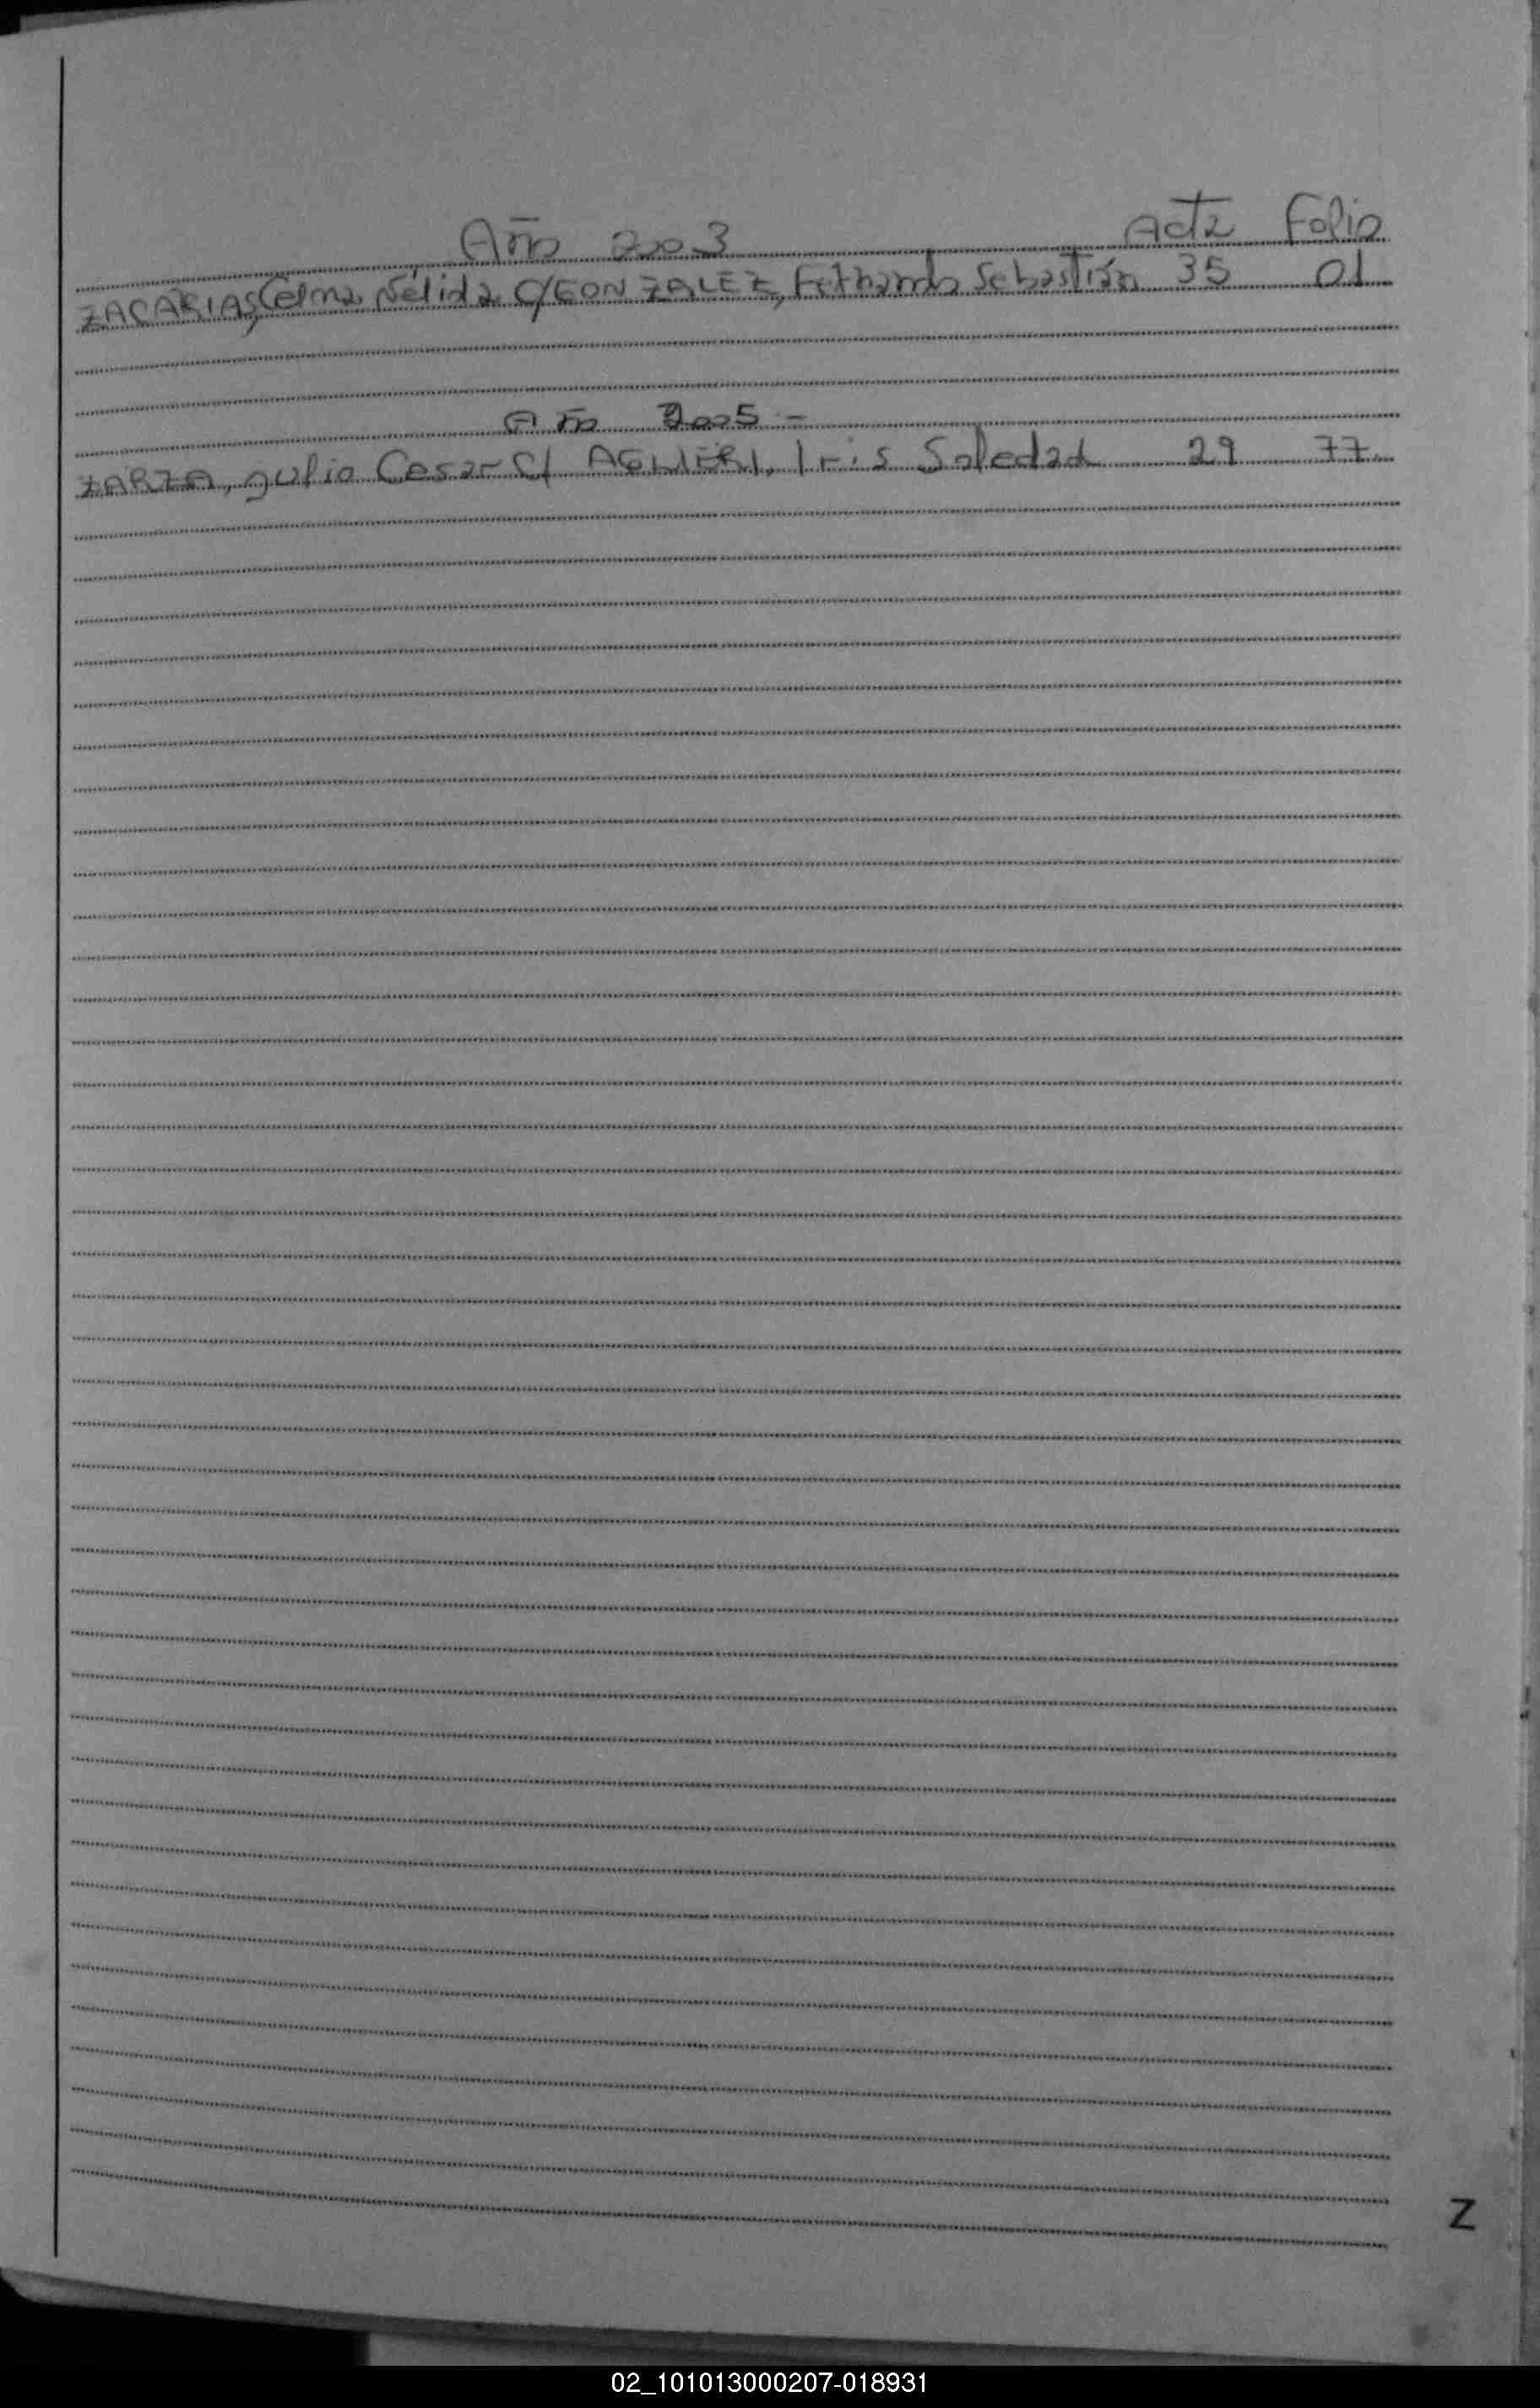 Año 2003 Acta Folio
ZACARIAS, Celma Nélida C/GONZALEZ, Fernando Sebastián 35 01
Año 2005 -
ZARZA, Julio Cesar C/ Iris Soledad 29 77
Z
02_101013000207-018931